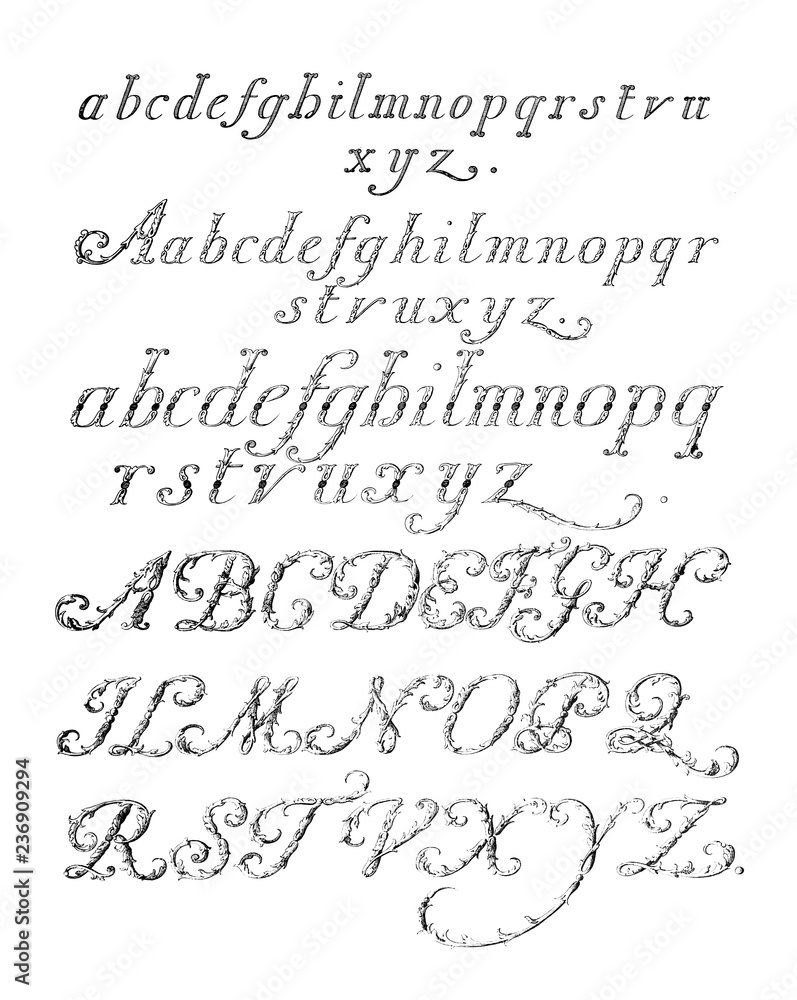 abcdefghilmnopqrstvu
xyz.
Aabcdefghilmnopqr
stvuxyz.
abcdefghilmnopq
rstvuxyz.
ABCDEFGH
ILMNOPQ
RSTVXYZ.
Adobe Stock | #236909294